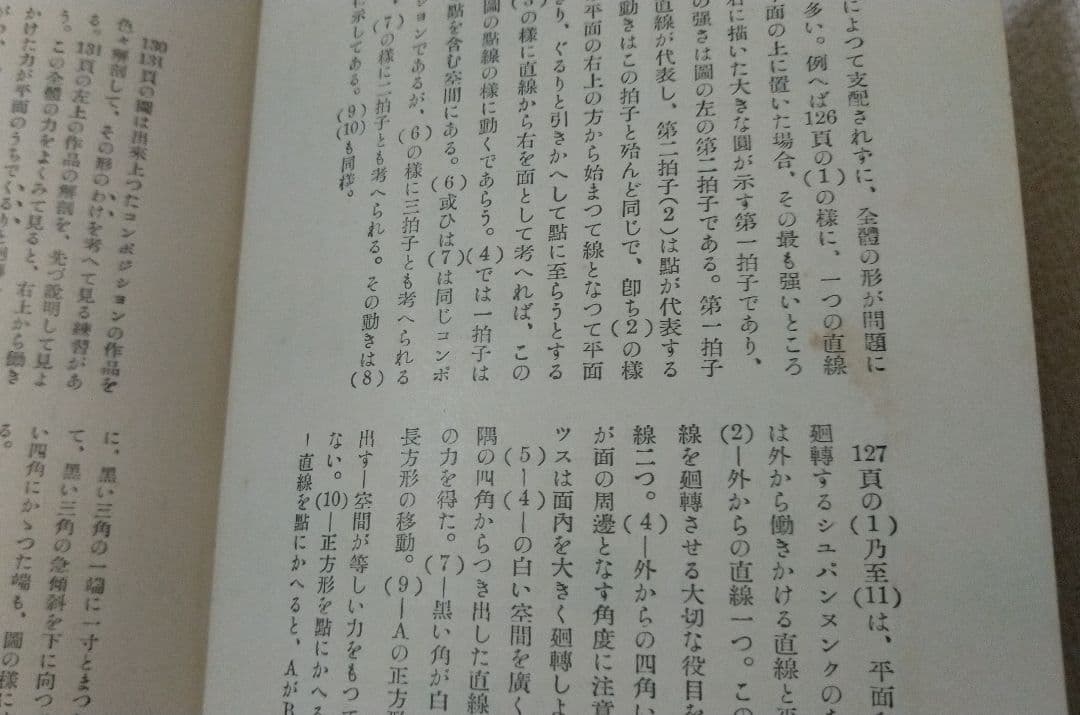 によつて支配されずに、全體の形が問題に
多い。例へば126頁の(1)の様に、一つの直線
面の上に置いた場合、その最も强いところ
右に描いた大きな圓が示す第一拍子であり、
の强さは圖の左の第二拍子である。第一拍子
直線が代表し、第二拍子(2)は點が代表する
動きはこの拍子と殆んど同じで、卽ち(2)の様
平面の右上の方から始まつて線となつて平面
り、ぐるりと引きかへして點に至らうとする
の様に直線から右を面として考へれば、この
圖の點線の様に動くであらう。(4)では一拍子は
點を含む空間にある。(6)或ひは(7)は同じコンポ
ジションであるが、(6)の様に三拍子とも考へられる
(7)の様に二拍子とも考へられる。その動きは(8)
に示してある。(9)(10)も同様。
127頁の(1)乃至(11)は、平面
廻轉するシュパンヌンクの
は外から働きかける直線と
(2)—外からの直線一つ。こ
線を廻轉させる大切な役目を
線二つ。(4)—外からの四角い
が面の周邊となす角度に注意
ツスは面內を大きく廻轉しよ
(5)—(4)の白い空間を廣く
隅の四角からつき出した直線
の力を得た。(7)—黑い角が白
長方形の移動。(9)—Aの正方形
出す—空間が等しい力をもつて
ない。(10)—正方形を點にかへる
—直線を點にかへると、AがB
130 131頁の圖は出來上つたコンポジションの作品を
色々解剖して、その形のわけを考へて見る練習があ
る。131頁の左上の作品の解剖を、先づ說明して見よ
う。この全體の力をよくみて見ると、右上から働き
かけた力が平面のうちで
に、黑い三角の一端に一寸とまつ
て、黑い三角の急傾斜を下に向つ
い四角にかゝつた端も、圖の様に
る。